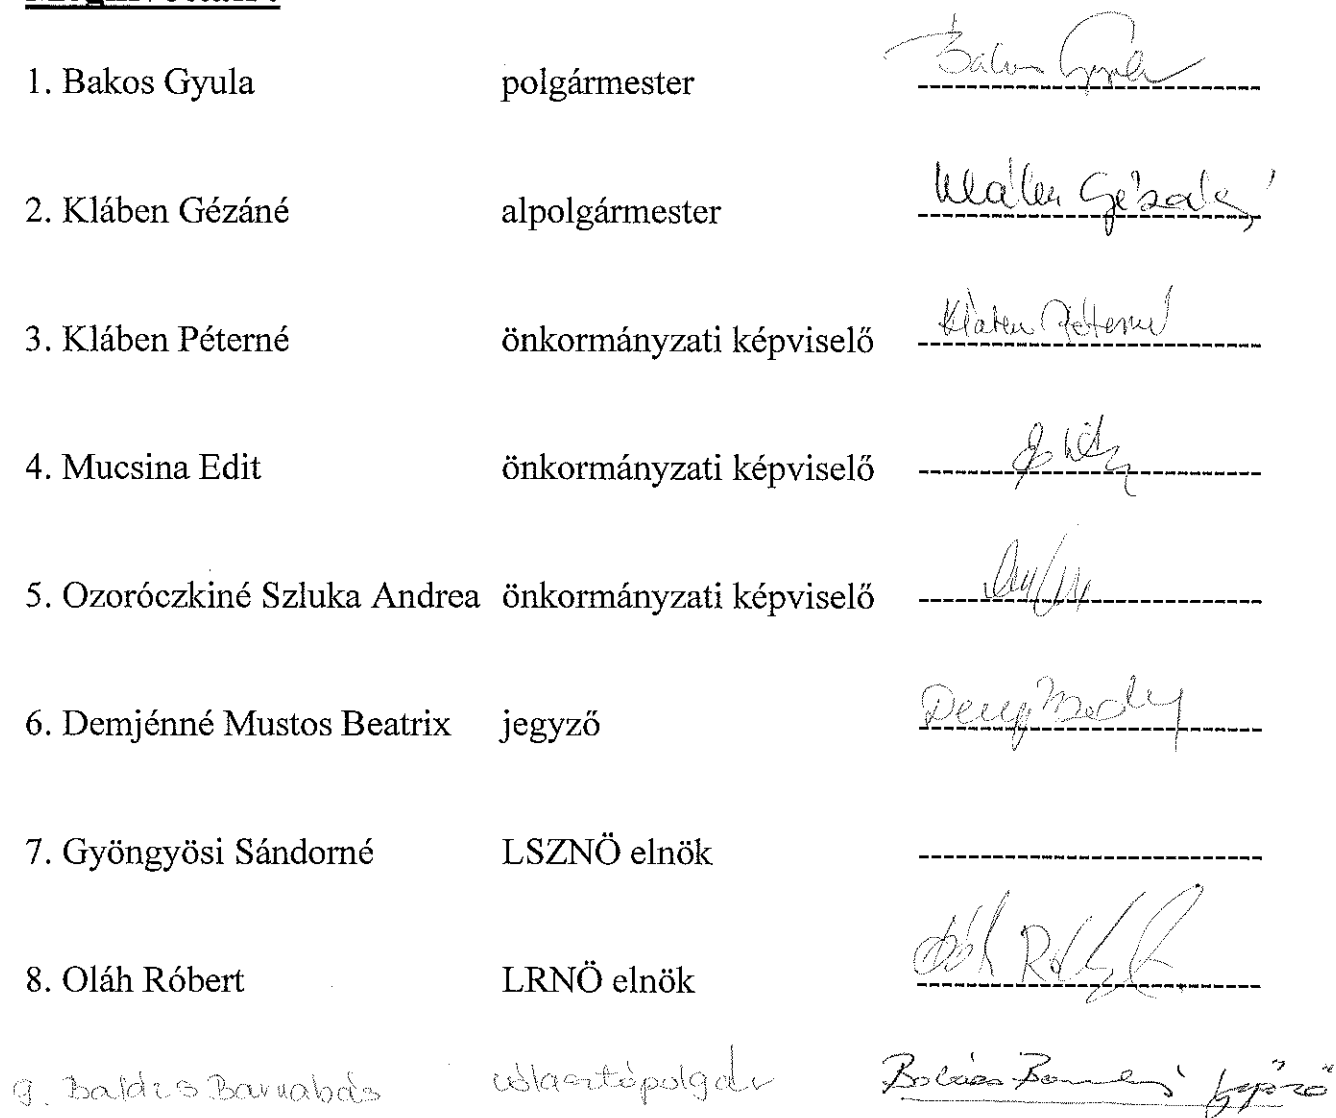 1. Bakos Gyula polgármester Bakos Gyula
2. Kláben Gézáné alpolgármester Kláben Gézáné
3. Kláben Péterné önkormányzati képviselő Kláben Péterné
4. Mucsina Edit önkormányzati képviselő
5. Ozoróczkiné Szluka Andrea önkormányzati képviselő
6. Demjénné Mustos Beatrix jegyző
7. Gyöngyösi Sándorné LSZNÖ elnök
8. Oláh Róbert LRNÖ elnök
9. Balázs Barnabás választópolgár